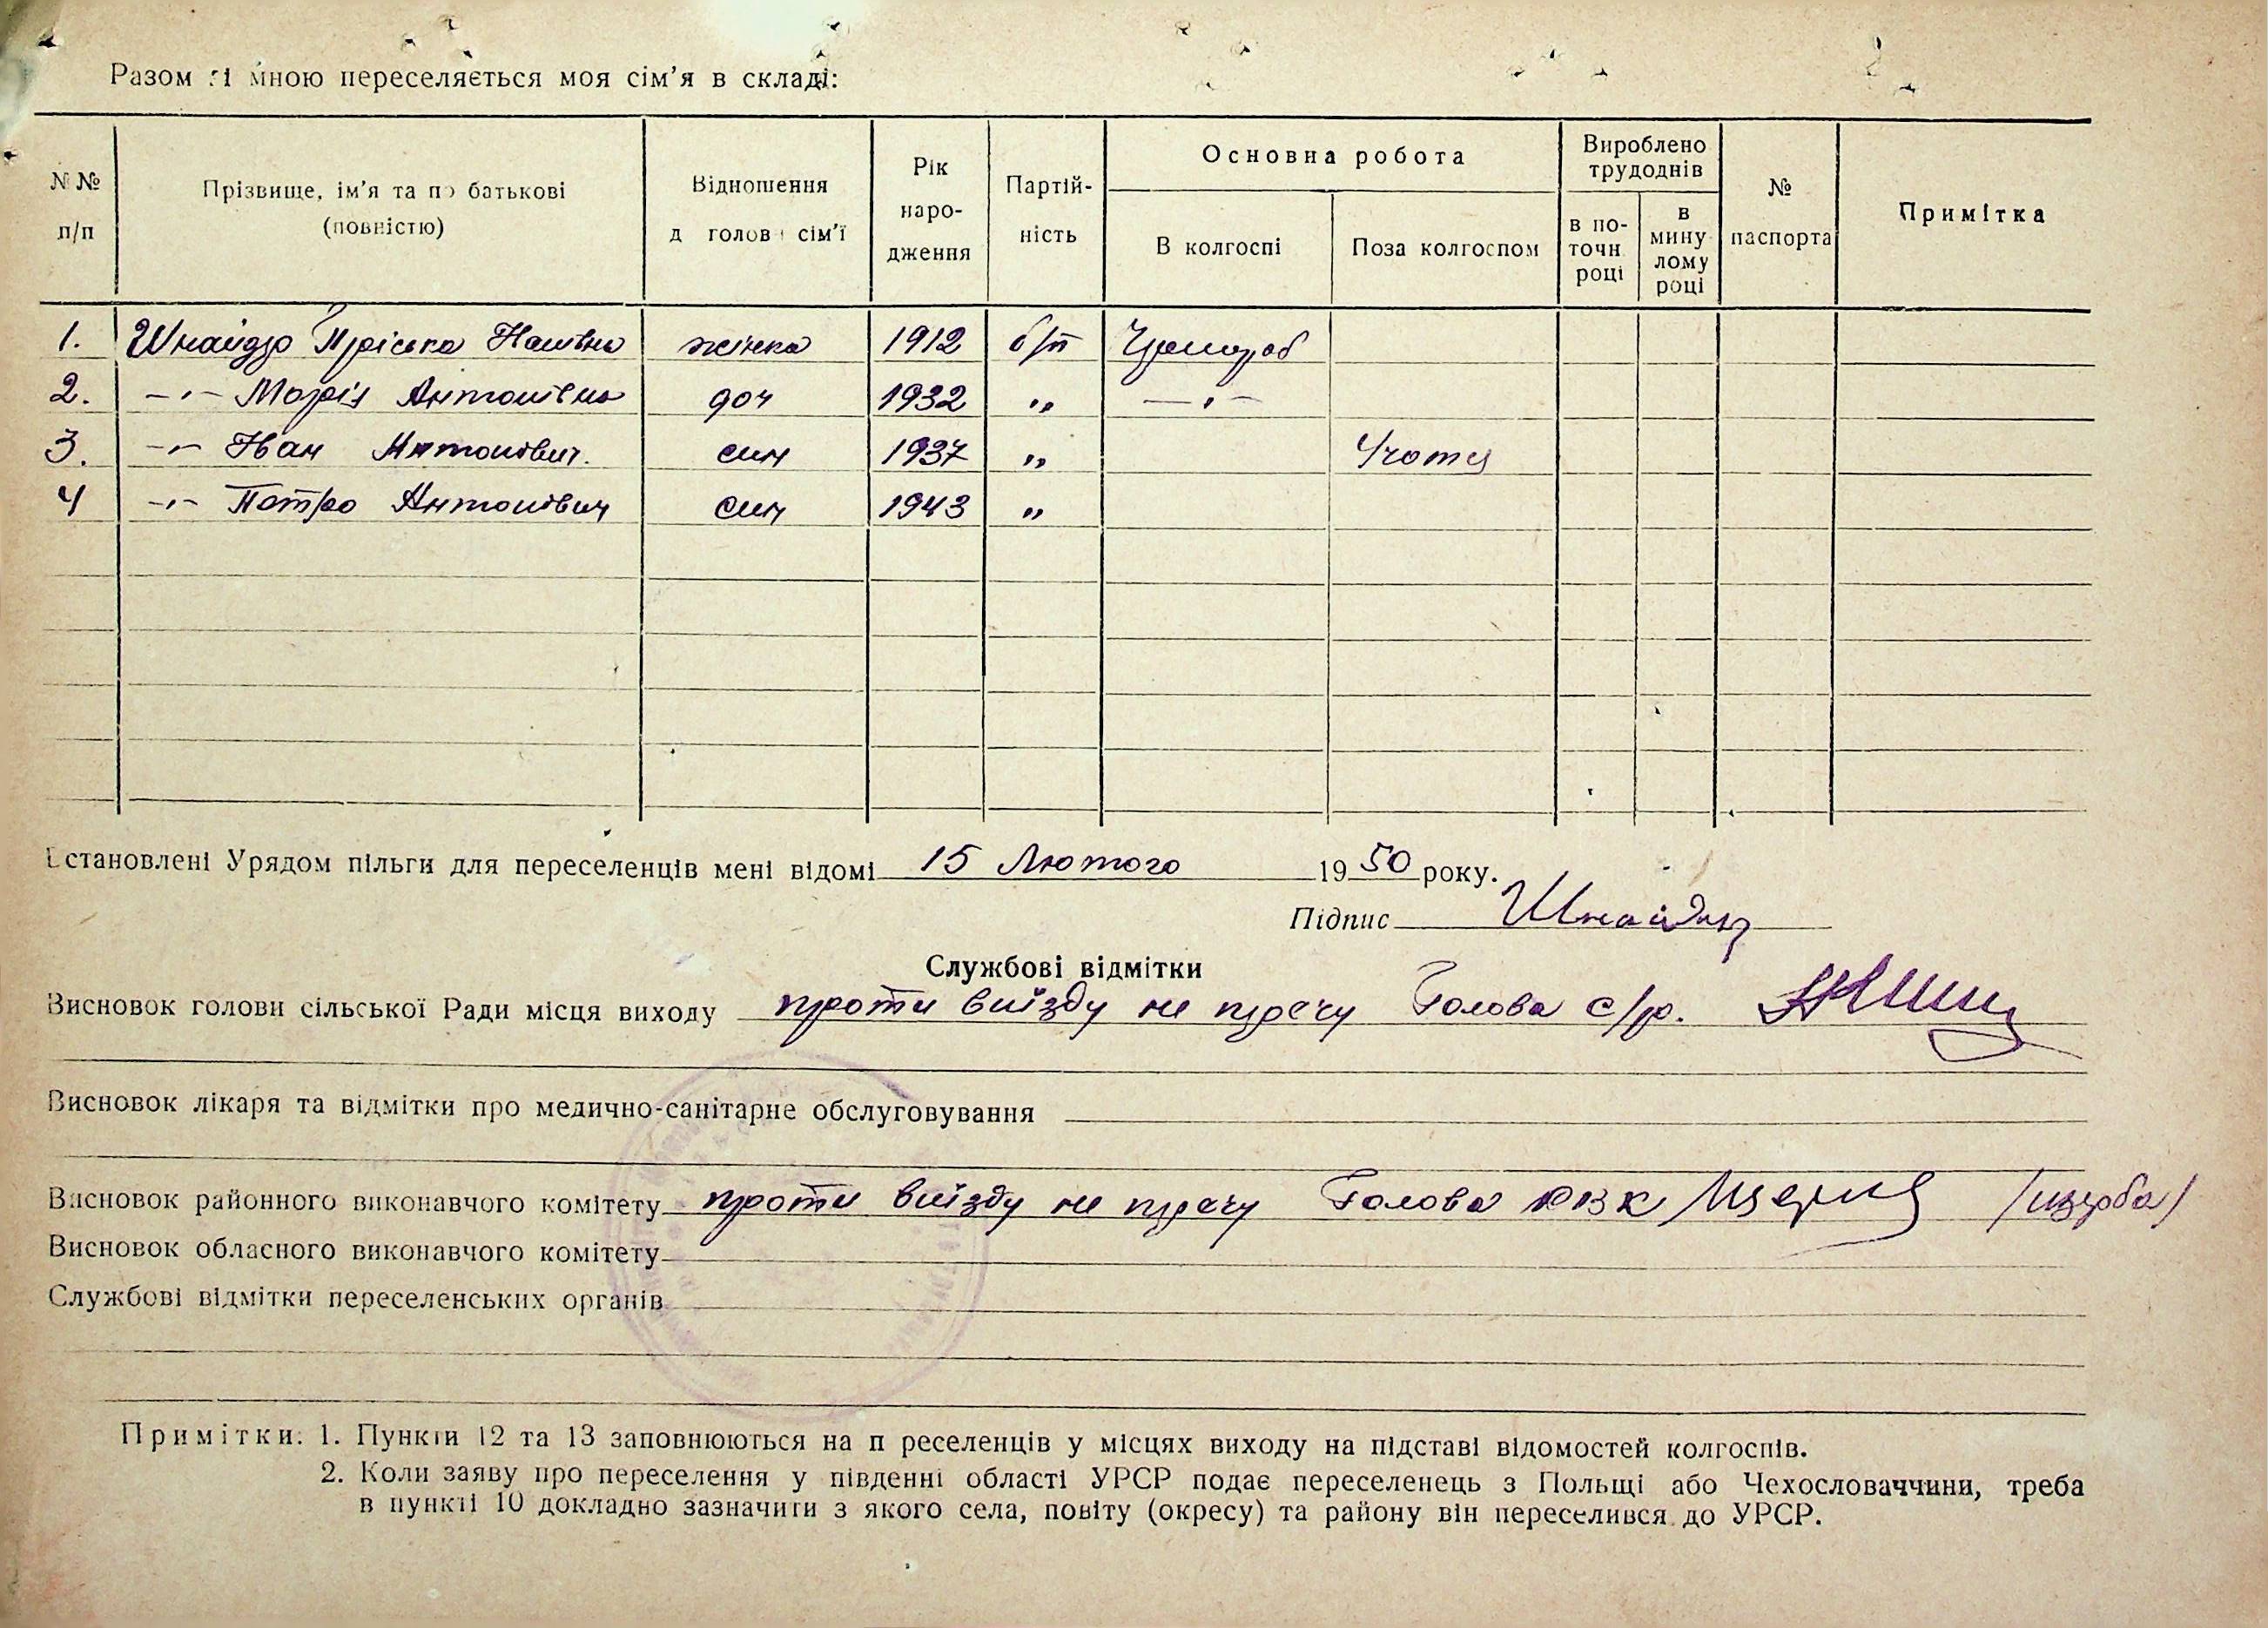 Разом зі мною переселяється моя сім'я в складі:
№№ п/п
Прізвище, ім'я та по батькові (повністю)
Відношення д голов сім'ї
Рік народження
Партій-ність
Основна робота
В колгоспі
Поза колгоспом
Вироблено трудоднів
в по-точн році
в мину лому році
№ паспорта
Примітка
1. Шнайдр Пріська жінка 1912 б/п Чорнороб
2. -"- Марія Антонівна доч 1932 " -"-
3. -"- Іван Антонович. син 1937 "
4 -"- Петро Антонівич син 1943 "
Встановлені Урядом пільги для переселенців мені відомі 15 Лютого 1950 року.
Підпис Шнайдер
Службові відмітки
Висновок голови сільської Ради місця виходу проти виїзду не пречу Голова с/р.
Висновок лікаря та відмітки про медично-санітарне обслуговування
Висновок районного виконавчого комітету проти виїзду не пречу Голова РВК /Щерба/
Висновок обласного виконавчого комітету
Службові відмітки переселенських органів
Примітки: 1. Пункти 12 та 13 заповнюються на п реселенців у місцях виходу на підставі відомостей колгоспів.
2. Коли заяву про переселення у південні області УРСР подає переселенець з Польщі або Чехословаччини, треба
в пункті 10 докладно зазначити з якого села, повіту (окресу) та району він переселився до УРСР.